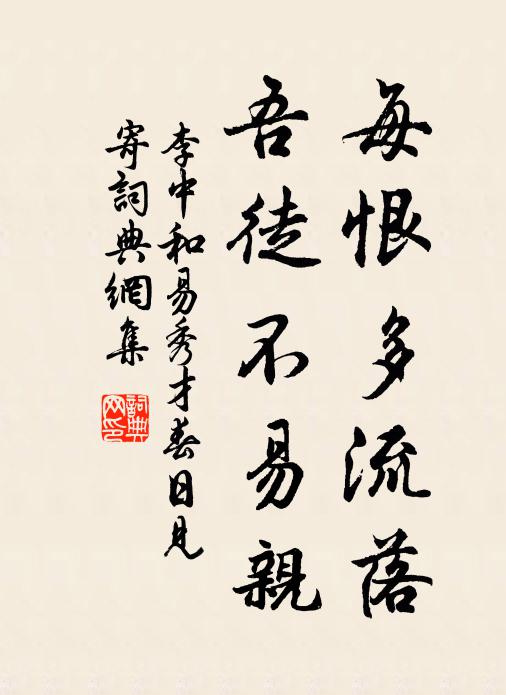 每恨多流落
吾徒不易親
李中和易秀才春日見
寄詞典網集
詞典
网印